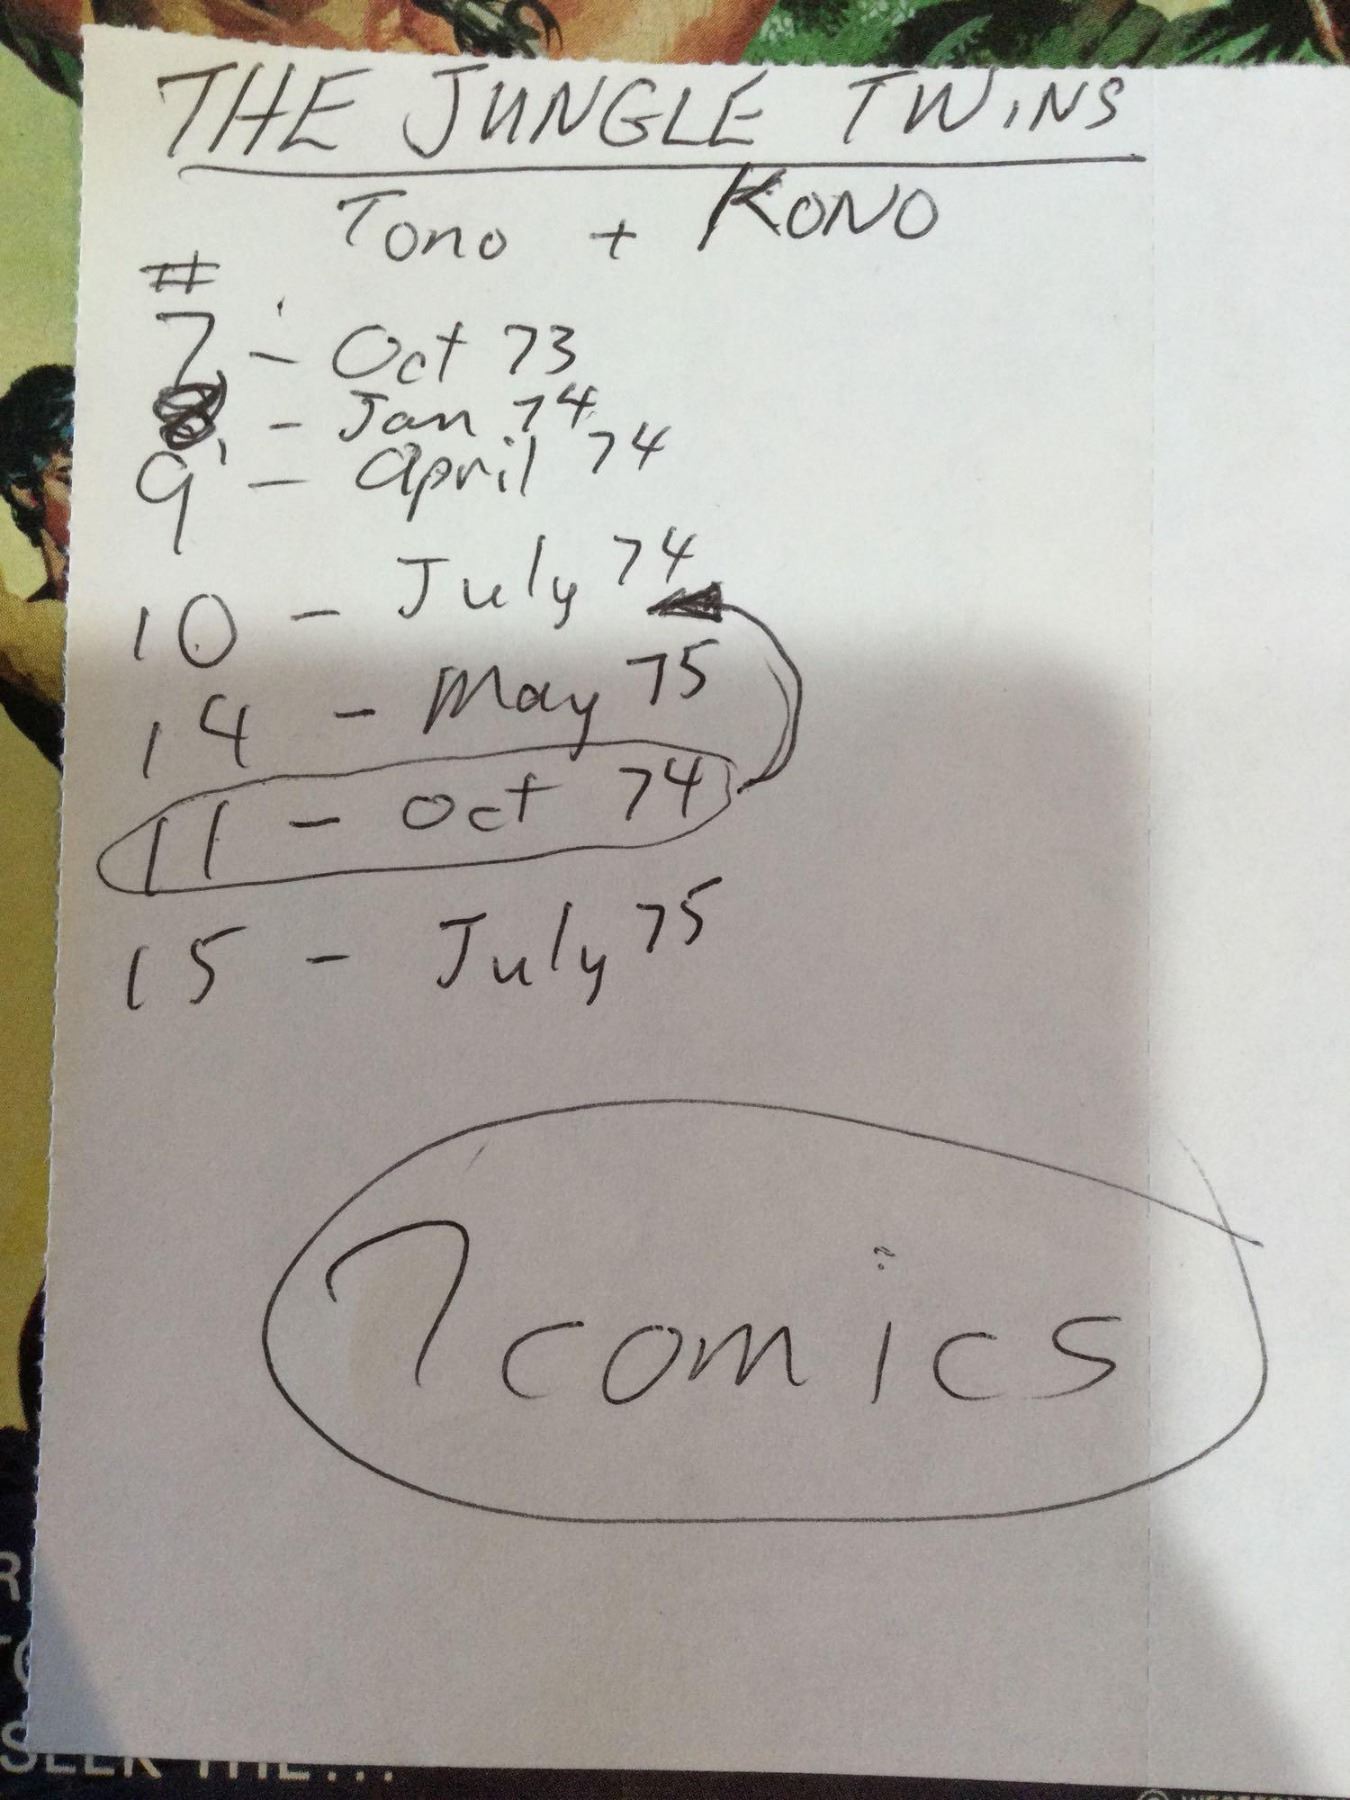 THE JUNGLE TWINS
Tono + KONO
#
7 - Oct 73
8 - Jan 74
9 - april 74
10 - July 74
14 - May 75
11 - Oct 74
15 - July 75
7 comics
SEEK THE...